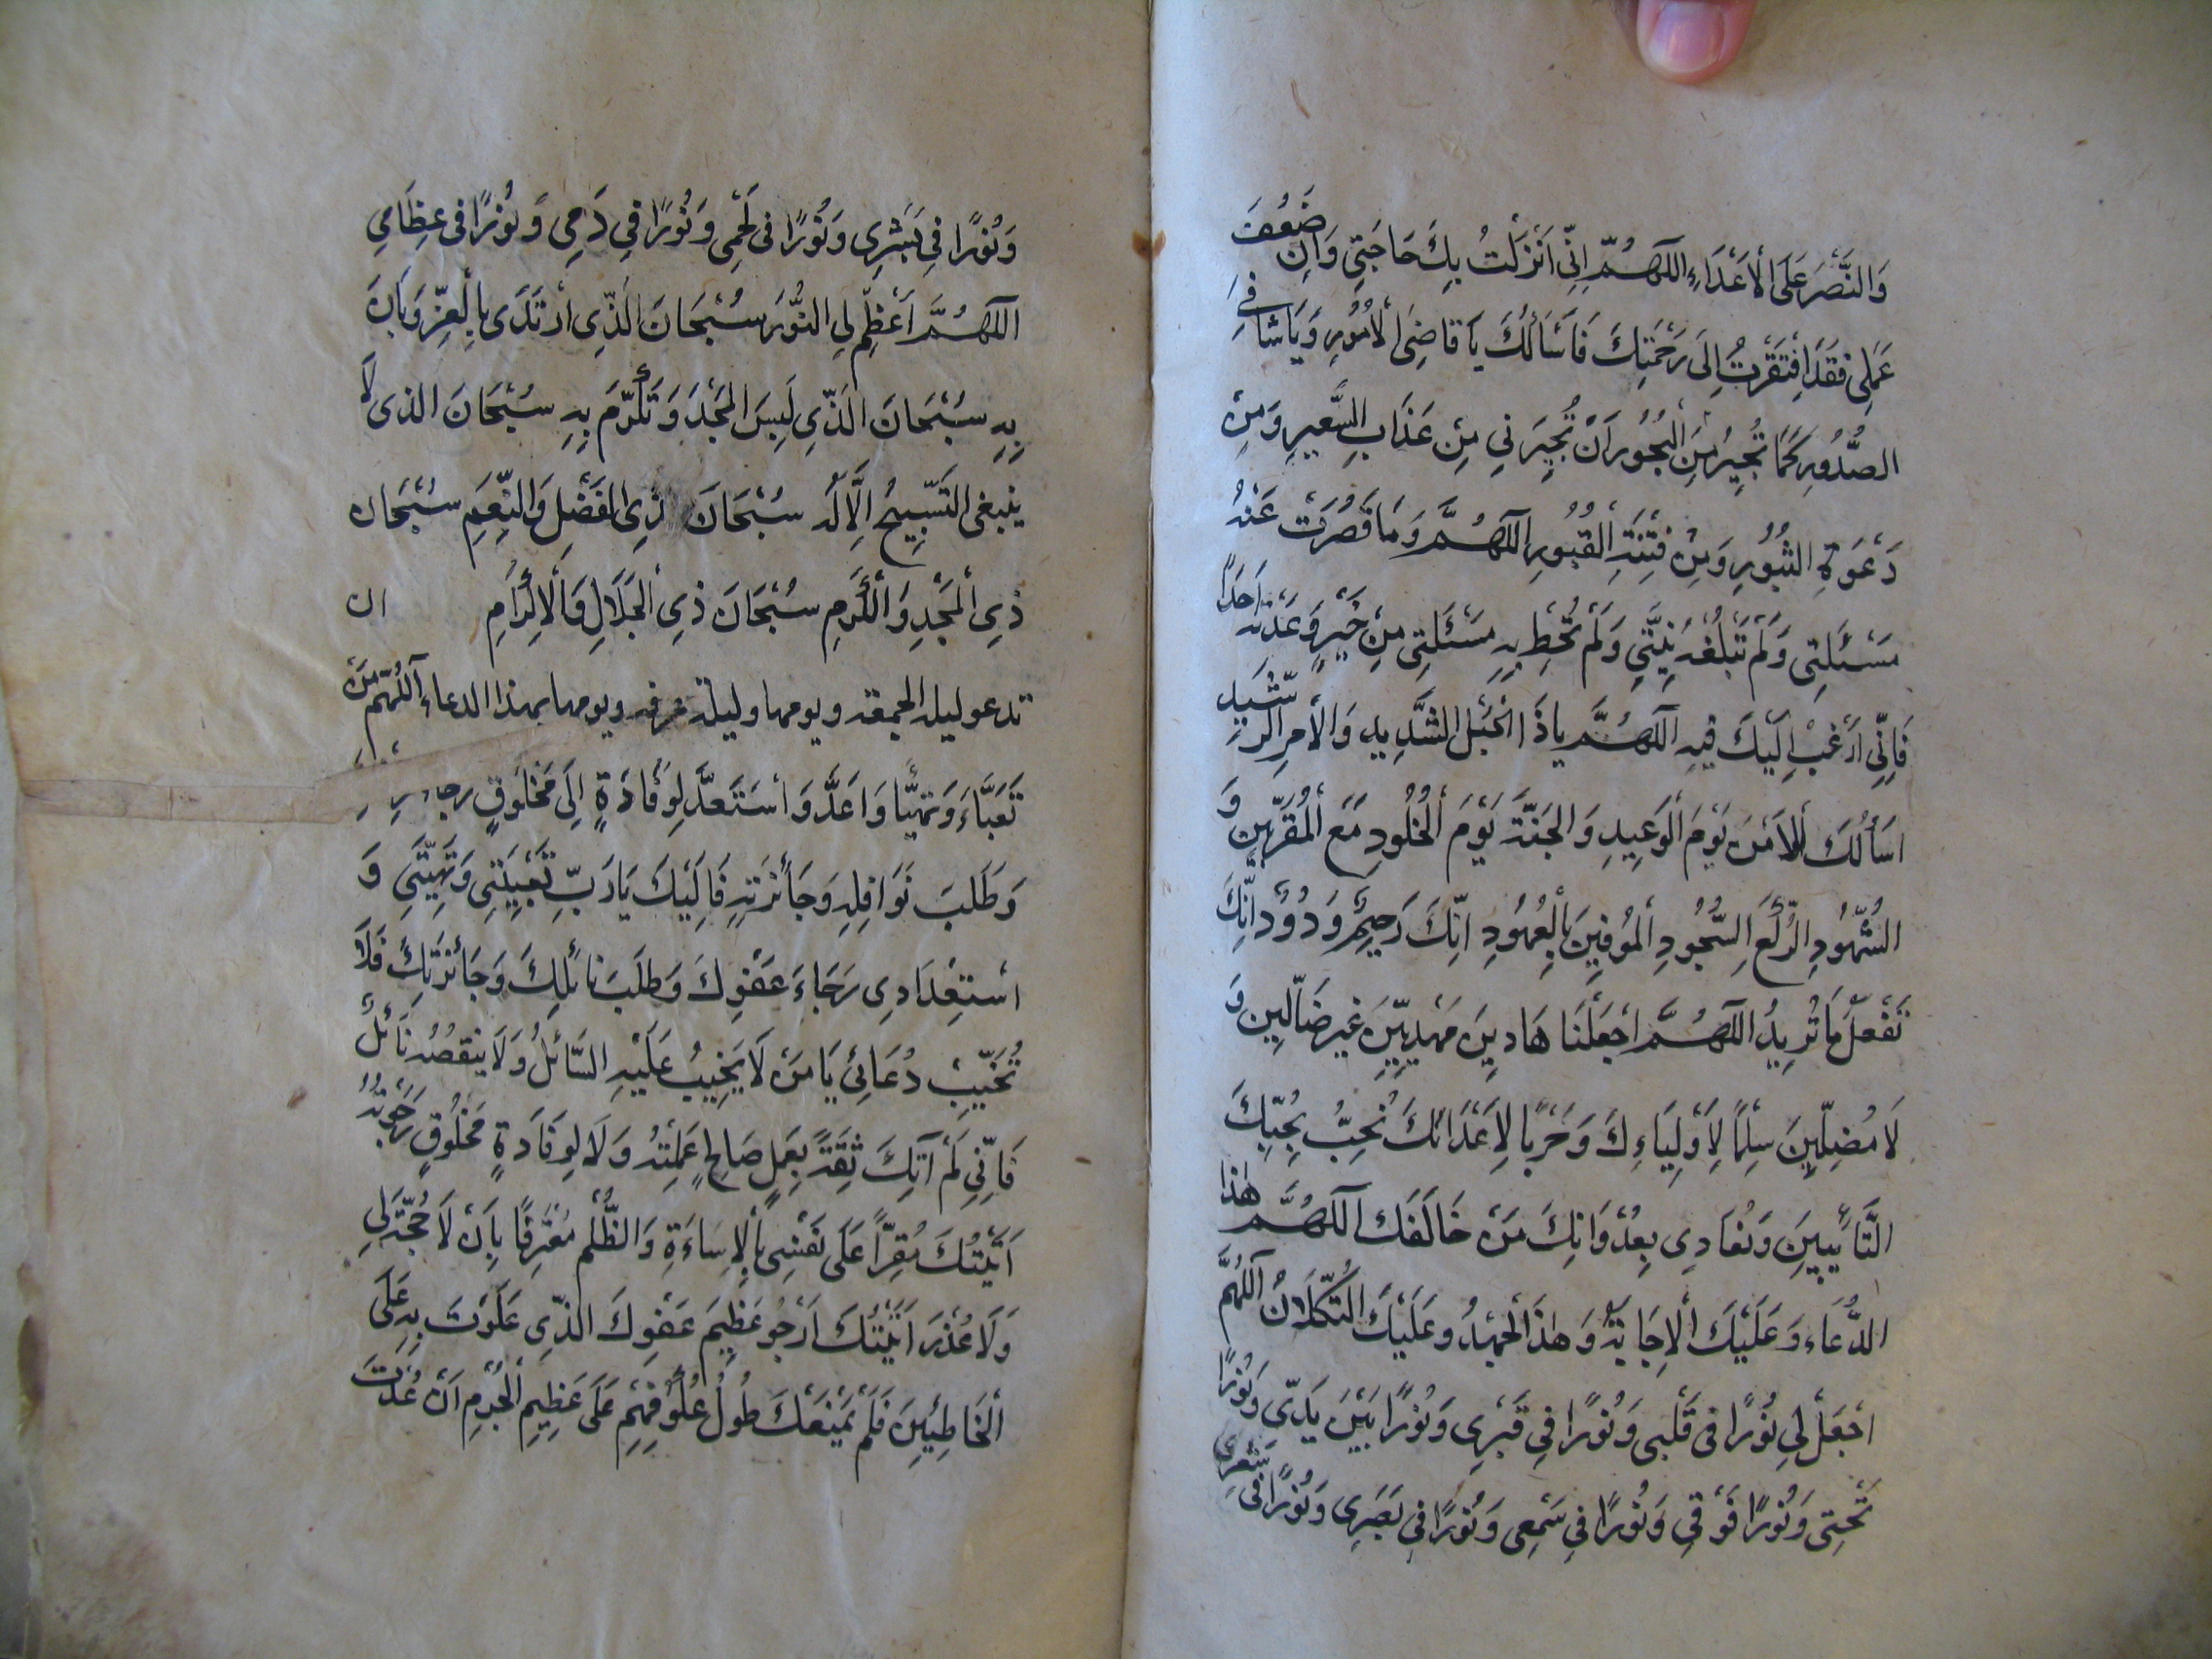 وَالنَّصْرَ عَلَى الْاَعْدَاءِ اللّٰهُمَّ اِنِّى اَنْزَلْتُ بِكَ حَاجَتِى وَاِنْ ضَعُفَ
عَمَلِى فَقَدْ اِفْتَقَرْتُ اِلَى رَحْمَتِكَ فَاَسْاَلُكَ يَا قَاضِىَ الْاُمُورِ وَيَا شَافِىَ
الصُّدُورِ كَمَا تُجِيرُ مِنَ الْبُحُورِ اَنْ تُجِيرَنِى مِنْ عَذَابِ السَّعِيرِ وَمِنْ
دَعْوَةِ الثُّبُورِ وَمِنْ فِتْنَةِ الْقُبُورِ اللّٰهُمَّ وَمَا قَصُرَتْ عَنْهُ
مَسْئَلَتِى وَلَمْ تَبْلُغْهُ نِيَّتِى وَلَمْ تُحِطْ بِهِ مَسْئَلَتِى مِنْ خَيْرٍ وَعَدْتَهُ اَحَدًا
فَاِنِّى اَرْغَبُ اِلَيْكَ فِيهِ اللّٰهُمَّ يَا ذَا الْحَبْلِ الشَّدِيدِ وَالْاَمْرِ الرَّشِيدِ
اَسْأَلُكَ الْاَمْنَ يَوْمَ الْوَعِيدِ وَالْجَنَّةَ يَوْمَ الْخُلُودِ مَعَ الْمُقَرَّبِينَ وَ
الشُّهُودِ الرُّكَّعِ السُّجُودِ الْمُوفِينَ بِالْعُهُودِ اِنَّكَ رَحِيمٌ وَدُودٌ اِنَّكَ
تَفْعَلُ مَا تُرِيدُ اللّٰهُمَّ اجْعَلْنَا هَادِيِنَ مَهْدِيِّينَ غَيْرَ ضَالِّينَ وَ
لَا مُضِلِّينَ سِلْمًا لِاَوْلِيَاءِكَ وَحَرْبًا لِاَعْدَائِكَ نُحِبُّ بِحُبِّكَ
التَّائِبِينَ وَنُعَادِى بِعُدْوَانِكَ مَنْ خَالَفَكَ اللّٰهُمَّ هٰذَا
الدُّعَاءُ وَعَلَيْكَ الْاِجَابَةُ وَهٰذَا الْجُهْدُ وَعَلَيْكَ التُّكْلَانُ اللّٰهُمَّ
اجْعَلْ لِى نُورًا فِى قَلْبِى وَنُورًا فِى قَبْرِى وَنُورًا بَيْنَ يَدَىَّ وَنُورًا
تَحْتِى وَنُورًا فَوْقِى وَنُورًا فِى سَمْعِى وَنُورًا فِى بَصَرِى وَنُورًا فِى شَعْرِى
وَنُورًا فِى بَشَرِى وَنُورًا فِى لَحْمِى وَنُورًا فِى دَمِى وَنُورًا فِى عِظَامِى
اللّٰهُمَّ اَعْظِمْ لِى النُّورَ سُبْحَانَ الَّذِى ارْتَدَى بِالْعِزِّ وَبَانَ
بِهِ سُبْحَانَ الَّذِى لَبِسَ الْمَجْدَ وَتَكَرَّمَ بِهِ سُبْحَانَ الذى لَا
ينبغى التَّسْبِيحُ اِلَّا لَهُ سُبْحَانَ ذِى الْفَضْلِ وَالنِّعَمِ سُبْحَان
ذِى الْمَجْدِ وَالْكَرَمِ سُبْحَانَ ذِى الْجَلَالِ وَالْاِكْرَامِ ان
تدعو ليلة الجمعة ويومها وليلة عرفه ويومها بهذا الدعاء اَللّٰهُمَّ مَنْ
تَعَبَّاءَ وَتَهَيَّأَ وَاَعَدَّ وَاسْتَعَدَّ لِوَفَادَةٍ اِلَى مَخْلُوقٍ
وَطَلَبَ نَوَافِلِهِ وَجَائِزَتِهِ فَاِلَيْكَ يَا رَبِّ تَعْبِيَتِى وَتَهْيِئَتِى وَ
اسْتِعْدَادِى رَجَاءَ عَفْوِكَ وَطَلَبَ نَائِلِكَ وَجَائِزَتِكَ فَلَا
تُخَيِّبْ دُعَائِى يَا مَنْ لَا يَخِيبُ عَلَيْهِ السَّائِلُ وَلَا يَنْقُصُهُ نَائِلٌ
فَاِنِّى لَمْ آتِكَ ثِقَةً بِعَمَلٍ صَالِحٍ عَمِلْتُهُ وَلَا لِوَفَادَةِ مَخْلُوقٍ رَجَوْتُهُ
اَتَيْتُكَ مُقِرًّا عَلَى نَفْسِى بِالْاِسَاءَةِ وَالظُّلْمِ مُعْتَرِفًا بِاَنْ لَا حُجَّةَ لِى
وَلَا عُذْرَ اَتَيْتُكَ اَرْجُو عَظِيمَ عَفْوِكَ الَّذِى عَلَوْتَ بِهِ عَلَى
الْخَاطِئِينَ فَلَمْ يَمْنَعْكَ طُولُ عُكُوفِهِمْ عَلَى عَظِيمِ الْجُرْمِ اَنْ عُدْتَ